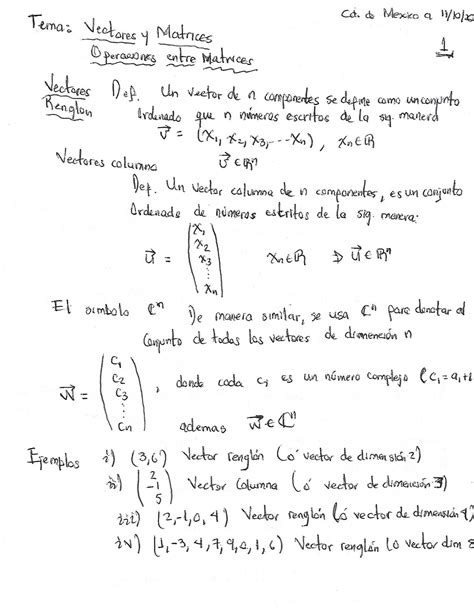 Cd. de Mexico a 11/10/20
Tema: Vectores y Matrices
Operaciones entre Matrices
1
Vectores Renglon Def. Un vector de n componentes se define como un conjunto
ordenado que n números escritos de la sig. manera
v⃗ = (x₁, x₂, x₃, ... xₙ), xₙ∈ℝ
v⃗ ∈ ℝⁿ
Vectores columna
Def. Un Vector columna de n componentes, es un conjunto
Ordenado de números escritos de la sig. manera:
u⃗ = (x₁ x₂ x₃ ⋮ xₙ) xₙ∈ℝ ⇒ u⃗ ∈ ℝⁿ
El simbolo ℂⁿ De manera similar, se usa ℂⁿ para denotar al
Conjunto de todos los vectores de dimención n
w⃗ = (c₁ c₂ c₃ ⋮ cₙ), donde cada cᵢ es un número complejo (c₁ = a₁+i
ademas w⃗ ∈ ℂⁿ
Ejemplos i) (3,6) Vector renglón (ó vector de dimensión 2)
ii) (2 -1 5) Vector Columna (ó vector de dimención 3)
iii) (2,-1,0,4) Vector renglón (ó vector de dimensión 4)
iv) (1,-3,4,7,9,0,1,6) Vector renglón (o vector dim 8